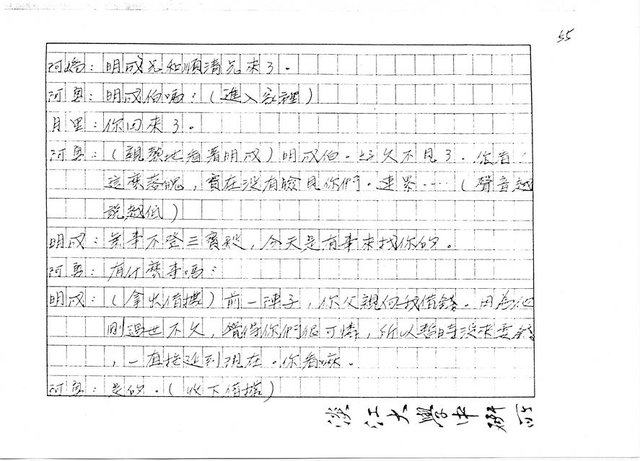 55
阿婚：明成兄和順清兄來了。
阿勇：明成伯嗎？（進入家裡）
月里：你回來了。
阿勇：（親熱地看著明成）明成伯。好久不見了。
這麼落魄，實在沒有臉見你們。連累……（聲音越
說越低）
明成：無事不登三寶殿，今天是有事來找你的。
阿勇：有什麼事嗎？
明成：（拿出借據）前一陣子，你父親向我借錢。因為他
剛過世不久，覺得你們很可憐，所以暫時沒來要錢
，一直拖延到現在。你看嘛。
阿勇：是的。（收下借據）
淡江大學中研所